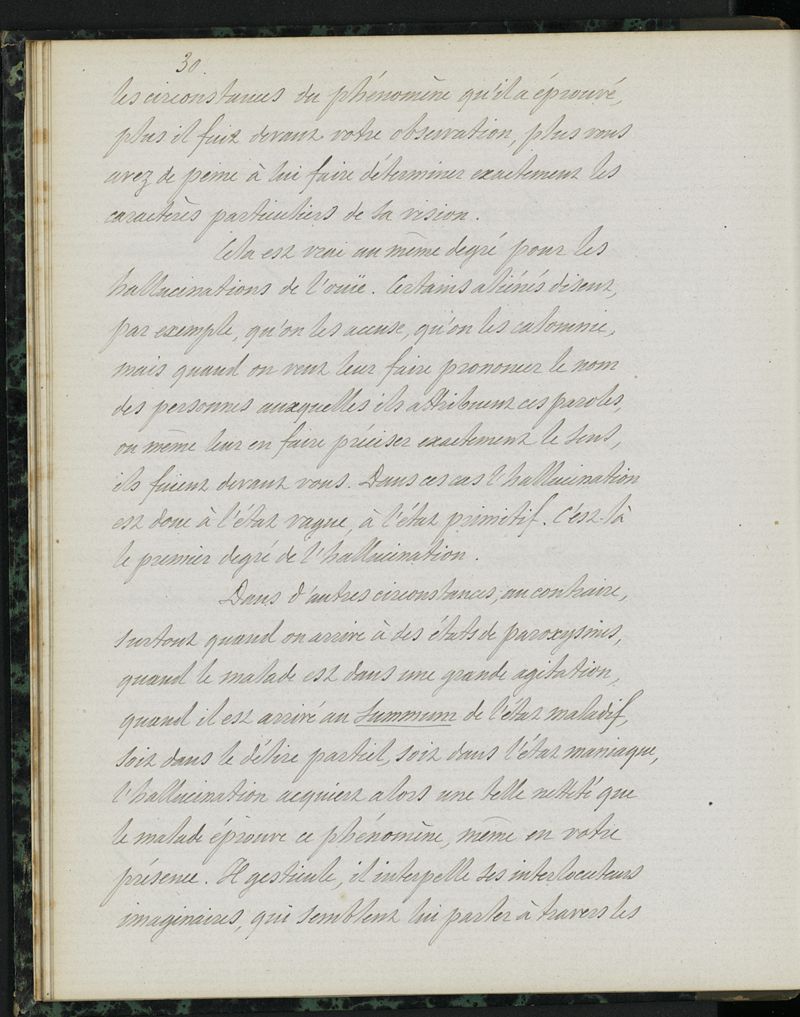 30
les circonstances du phénomène qu'il a éprouvé,
plus il fuit devant votre observation, plus vous
avez de peine à lui faire déterminer exactement les
caractères particuliers de sa vision.
Cela est vrai au même degré pour les
hallucinations de l'ouïe. Certains aliénés disent,
par exemple, qu'on les accuse, qu'on les calomnie,
mais quand on veut leur faire prononcer le nom
des personnes auxquelles ils attribuent ces paroles,
ou même leur en faire préciser exactement le sens,
ils fuient devant vous. Dans ces cas l'hallucination
est donc à l'état vague, à l'état primitif. C'est là
le premier degré de l'hallucination.
Dans d'autres circonstances, au contraire,
surtout quand on arrive à des états de paroxysmes,
quand le malade est dans une grande agitation,
quand il est arrivé au summum de l'état maladif,
soit dans le délire partiel, soit dans l'état maniaque,
l'hallucination acquiert alors une telle netteté que
le malade éprouve ce phénomène, même en votre
présence. Il gesticule, il interpelle ses interlocuteurs
imaginaires, qui semblent lui parler à travers les